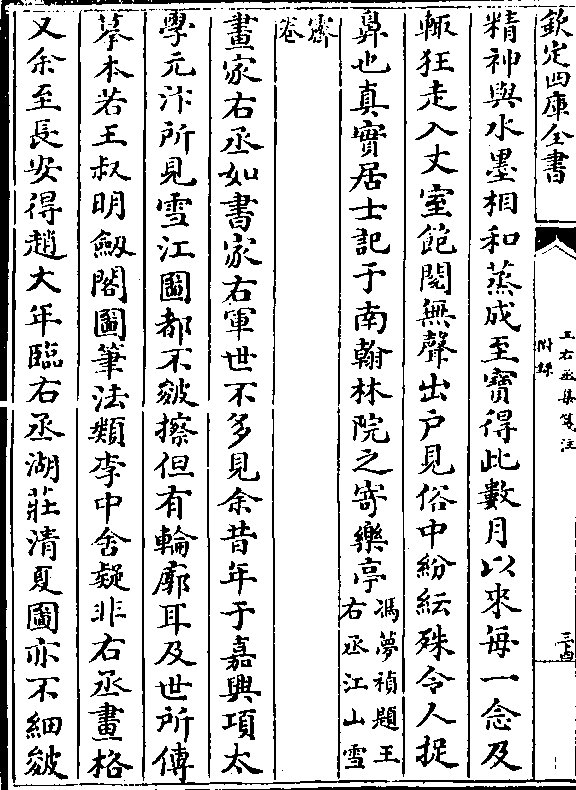 欽定四庫全書
王右丞集箋注
附錄
三十四
精神與水墨相和蒸成至寶得此數月以來每一念及
輒狂走入丈室飽閱無聲出戶見俗中紛紜殊令人捉
鼻也真實居士記于南翰林院之寄樂亭馮夢禎題王
右丞江山雪
霽
卷
畫家右丞如書家右軍世不多見余昔年于嘉興項太
學元汴所見雪江圖都不皴擦但有輪廓耳及世所傳
摹本若王叔明劔閣圖筆法類李中舍疑非右丞畫格
又余至長安得趙大年臨右丞湖莊清夏圖亦不細皴